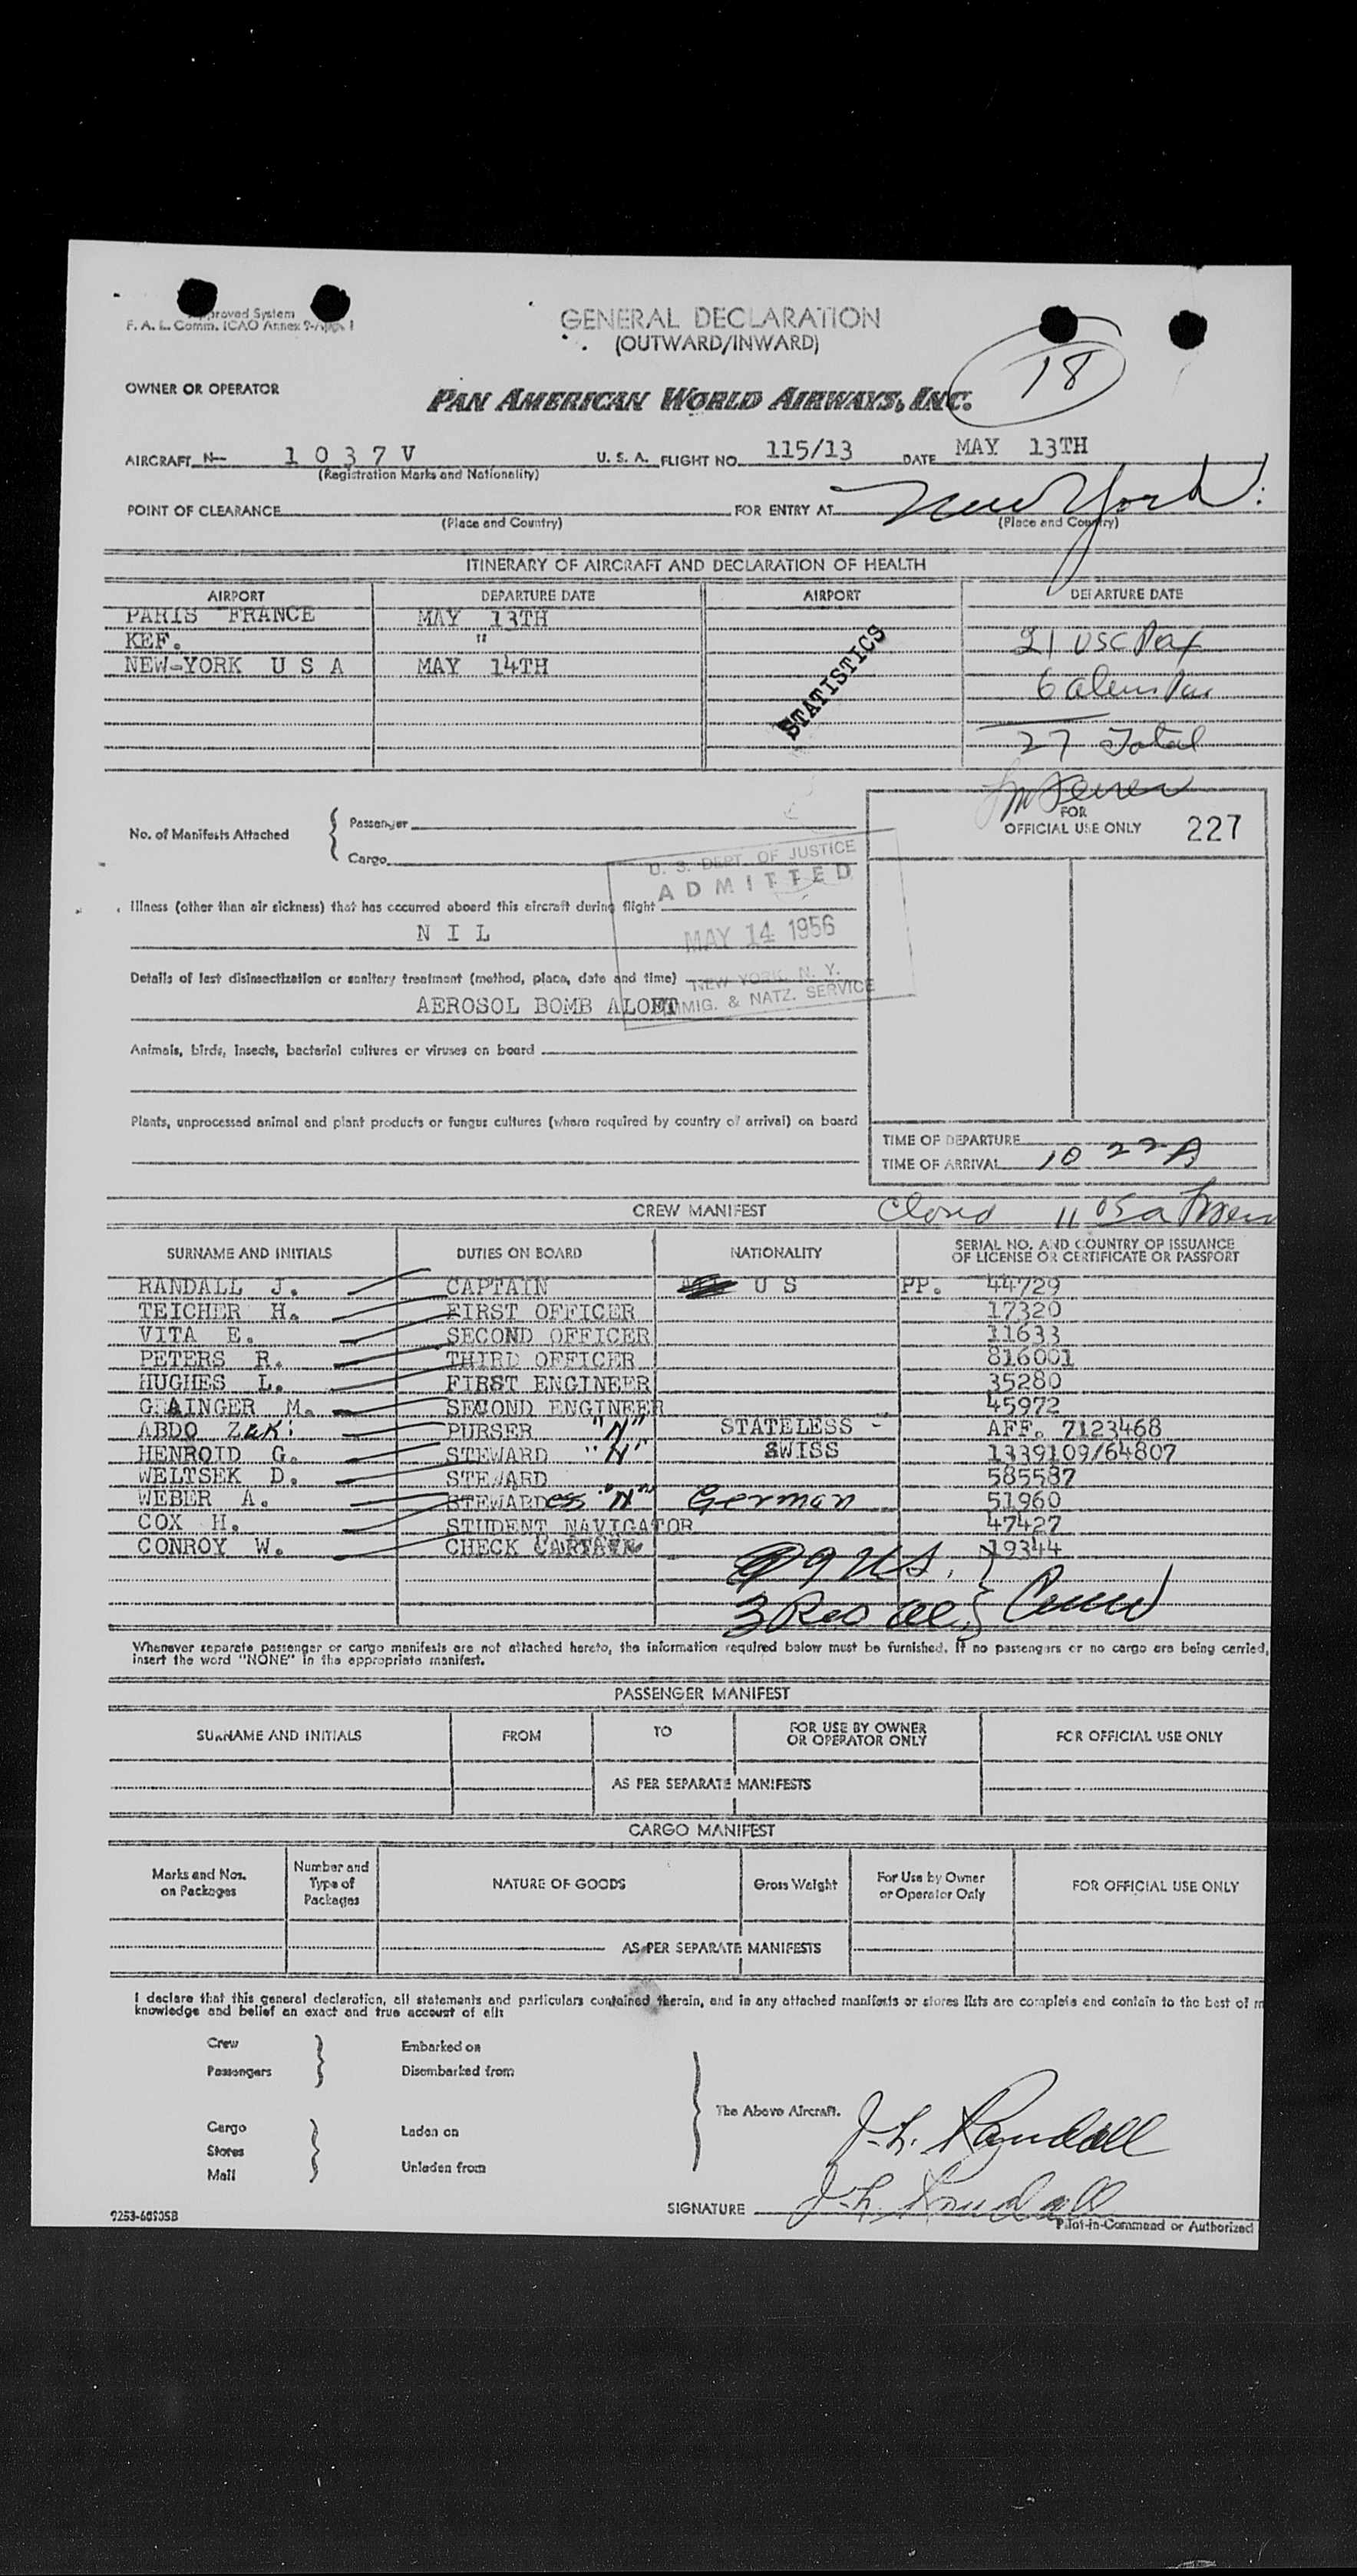 Approved System
F. A. L. Comm. ICAO Annex 9-App. 1
GENERAL DECLARATION
(OUTWARD/INWARD)
18
OWNER OR OPERATOR
PAN AMERICAN WORLD AIRWAYS, INC.
AIRCRAFT N- 1 0 3 7 V U. S. A. FLIGHT NO. 115/13 DATE MAY 13TH
(Registration Marks and Nationality)
POINT OF CLEARANCE FOR ENTRY AT New York
(Place and Country) (Place and Country)
ITINERARY OF AIRCRAFT AND DECLARATION OF HEALTH
AIRPORT DEPARTURE DATE AIRPORT DEPARTURE DATE
PARIS FRANCE MAY 13TH
KEF. " 21 USC Pax
NEW-YORK U S A MAY 14TH
6 aliens Pax
STATISTICS
27 Total
FOR
OFFICIAL USE ONLY 227
No. of Manifests Attached
Passenger
Cargo
U. S. DEPT. OF JUSTICE
ADMITTED
MAY 14 1956
NEW YORK, N. Y.
IMMIG. & NATZ. SERVICE
Illness (other than air sickness) that has occurred aboard this aircraft during flight
N I L
Details of last disinsectization or sanitary treatment (method, place, date and time)
AEROSOL BOMB ALOFT
Animals, birds, insects, bacterial cultures or viruses on board
Plants, unprocessed animal and plant products or fungus cultures (where required by country of arrival) on board
TIME OF DEPARTURE
TIME OF ARRIVAL 10 22 A
CREW MANIFEST
SURNAME AND INITIALS DUTIES ON BOARD NATIONALITY SERIAL NO. AND COUNTRY OF ISSUANCE OF LICENSE OR CERTIFICATE OR PASSPORT
RANDALL J. CAPTAIN U S PP. 44729
TEICHER H. FIRST OFFICER 17320
VITA E. SECOND OFFICER 11633
PETERS R. THIRD OFFICER 816001
HUGHES L. FIRST ENGINEER 35280
GRAINGER M. SECOND ENGINEER 45972
ABDO Zaki PURSER "N" STATELESS - AFF. 7123468
HENROID G. STEWARD "N" SWISS 1339109/64807
WELTSEK D. STEWARD 585587
WEBER A. STEWARDess "N" German 51960
COX H. STUDENT NAVIGATOR 47427
CONROY W. CHECK CAPTAIN 19344
9 US.
3 Res al. } Crew
Whenever separate passenger or cargo manifests are not attached hereto, the information required below must be furnished. If no passengers or no cargo are being carried,
insert the word "NONE" in the appropriate manifest.
PASSENGER MANIFEST
SURNAME AND INITIALS FROM TO FOR USE BY OWNER OR OPERATOR ONLY FOR OFFICIAL USE ONLY
AS PER SEPARATE MANIFESTS
CARGO MANIFEST
Marks and Nos. on Packages Number and Type of Packages NATURE OF GOODS Gross Weight For Use by Owner or Operator Only FOR OFFICIAL USE ONLY
AS PER SEPARATE MANIFESTS
I declare that this general declaration, all statements and particulars contained therein, and in any attached manifests or stores lists are complete and contain to the best of m
knowledge and belief an exact and true account of all:
Crew Embarked on
Passengers Disembarked from
The Above Aircraft.
Cargo Laden on
Stores
Mail Unladen from
J. h. Randall
SIGNATURE J. h. Randall
Pilot-in-Command or Authorized